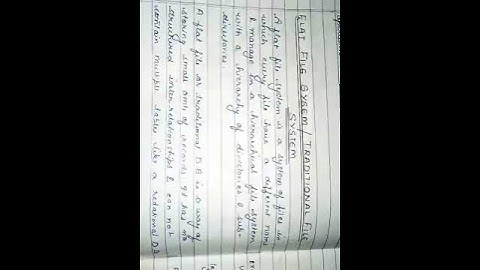 FLAT FILE SYSEM / TRADITIONAL FILE
SYSTEM
A flat file system is a system of files in
which every file have a different name
& manage in a hierarchical file system
with a hierarchy of directories & sub-
directories.
A flat file or traditional D.B is a way of
storing small amt of records. It has no
structured inter-relationships & can not
contain multiple tables like a relational DB